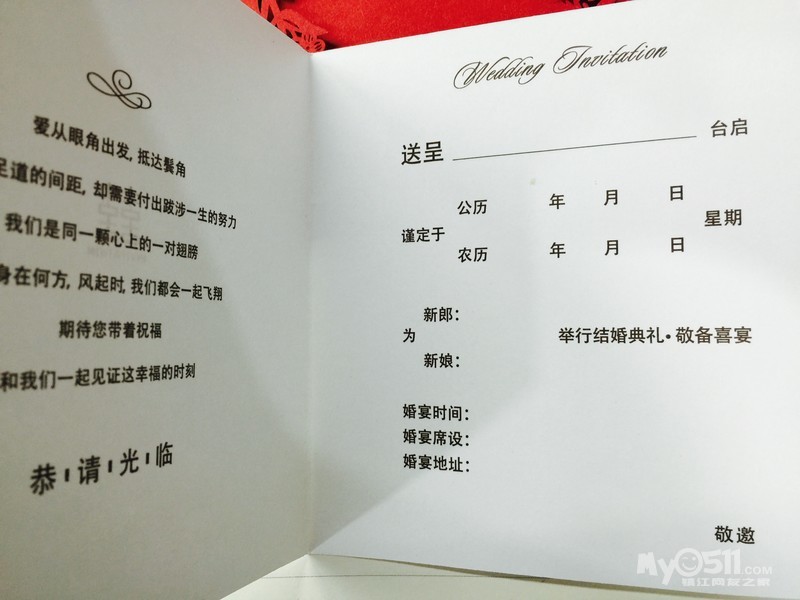 爱从眼角出发, 抵达鬓角
足道的间距, 却需要付出跋涉一生的努力
我们是同一颗心上的一对翅膀
身在何方, 风起时, 我们都会一起飞翔
期待您带着祝福
和我们一起见证这幸福的时刻
恭 请 光 临
Wedding Invitation
送呈 台启
公历 年 月 日
谨定于 星期
农历 年 月 日
新郎:
为 举行结婚典礼·敬备喜宴
新娘:
婚宴时间:
婚宴席设:
婚宴地址:
敬邀
My0511.COM
镇江网友之家